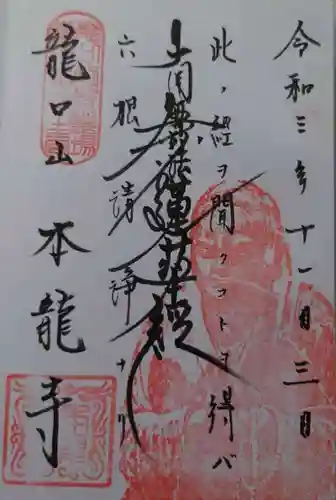 令和三年十一月三日
此ノ経ヲ聞クコトヲ得バ
南無妙法蓮華経
六根清浄ナリ
龍口山
本龍寺